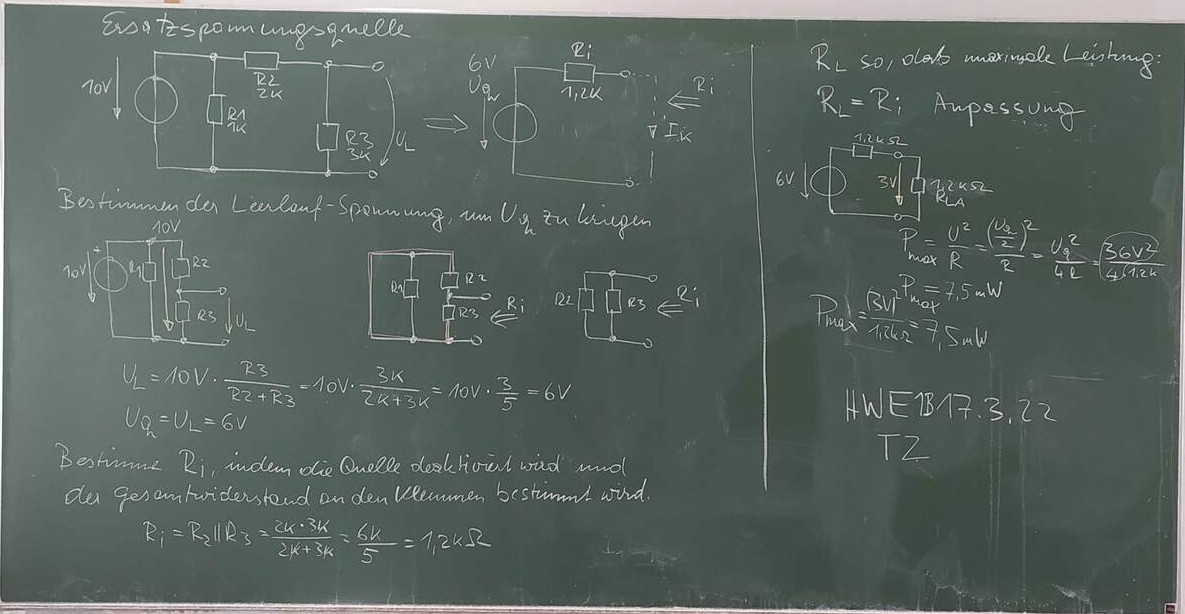 Ersatzspannungsquelle
10V
R2
2K
R1
1K
R3
3K
UL
6V
Uq
Ri
1,2K
Iik
Ri
Bestimmen der Leerlauf-Spannung, um Uq zu kriegen
10V
10V
R1
R2
R3
UL
R1
R2
R3
Ri
R2
R3
Ri
UL = 10V · R3 / (R2+R3) = 10V · 3K / (2K+3K) = 10V · 3/5 = 6V
Uq = UL = 6V
Bestimme Ri, indem die Quelle deaktiviert wird und
der Gesamtwiderstand an den Klemmen bestimmt wird.
Ri = R2||R3 = 2K·3K / (2K+3K) = 6K/5 = 1,2KΩ
RL so, dass maximale Leistung:
RL = Ri Anpassung
1,2KΩ
6V
3V
1,2KΩ
RLA
Pmax = U²/R = (Uq/2)²/R = Uq²/4R = 36V²/4·1,2K
Pmax = 7,5mW
Pmax = (3V)²/1,2KΩ = 7,5mW
HWE1B 17.3.22
TZ